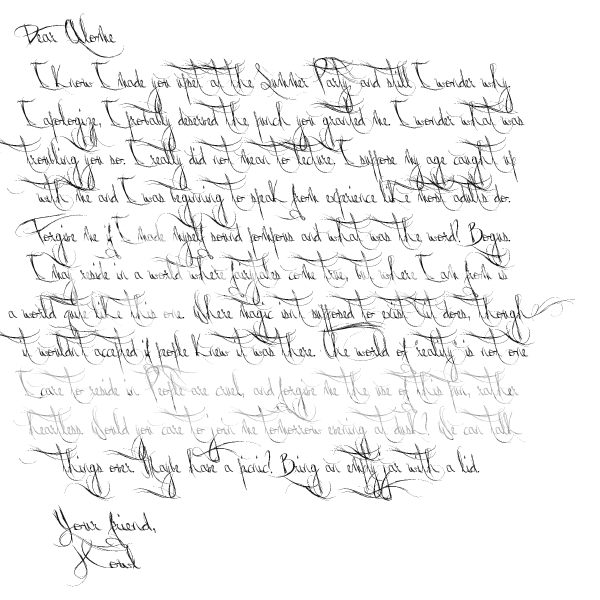 Dear
I know I made you upset at the Summer Party, and still I wonder why.
I apologize, I probally deserved the punch you granted me. I wonder what was
troubling you so. I really did not mean to lecture. I suppose my age caught up
with me and I was beginning to speak from experience like most adults do.
Forgive me if I made myself sound pompous and what was the word? Bogus.
I may reside in a world where fairytales come true, but where I am from is
a world quite like this one. Where magic isn't supposed to exist- but does, though
it wouldn't accepted if people knew it was there. The world of "reality" is not one
I care to reside in. People are cruel, and forgive me the use of this pun, rather
heartless. Would you care to join me tomorrow evening at dusk? We can talk
things over. Maybe have a picnic? Bring an empty jar with a lid.
Your friend,
Howl